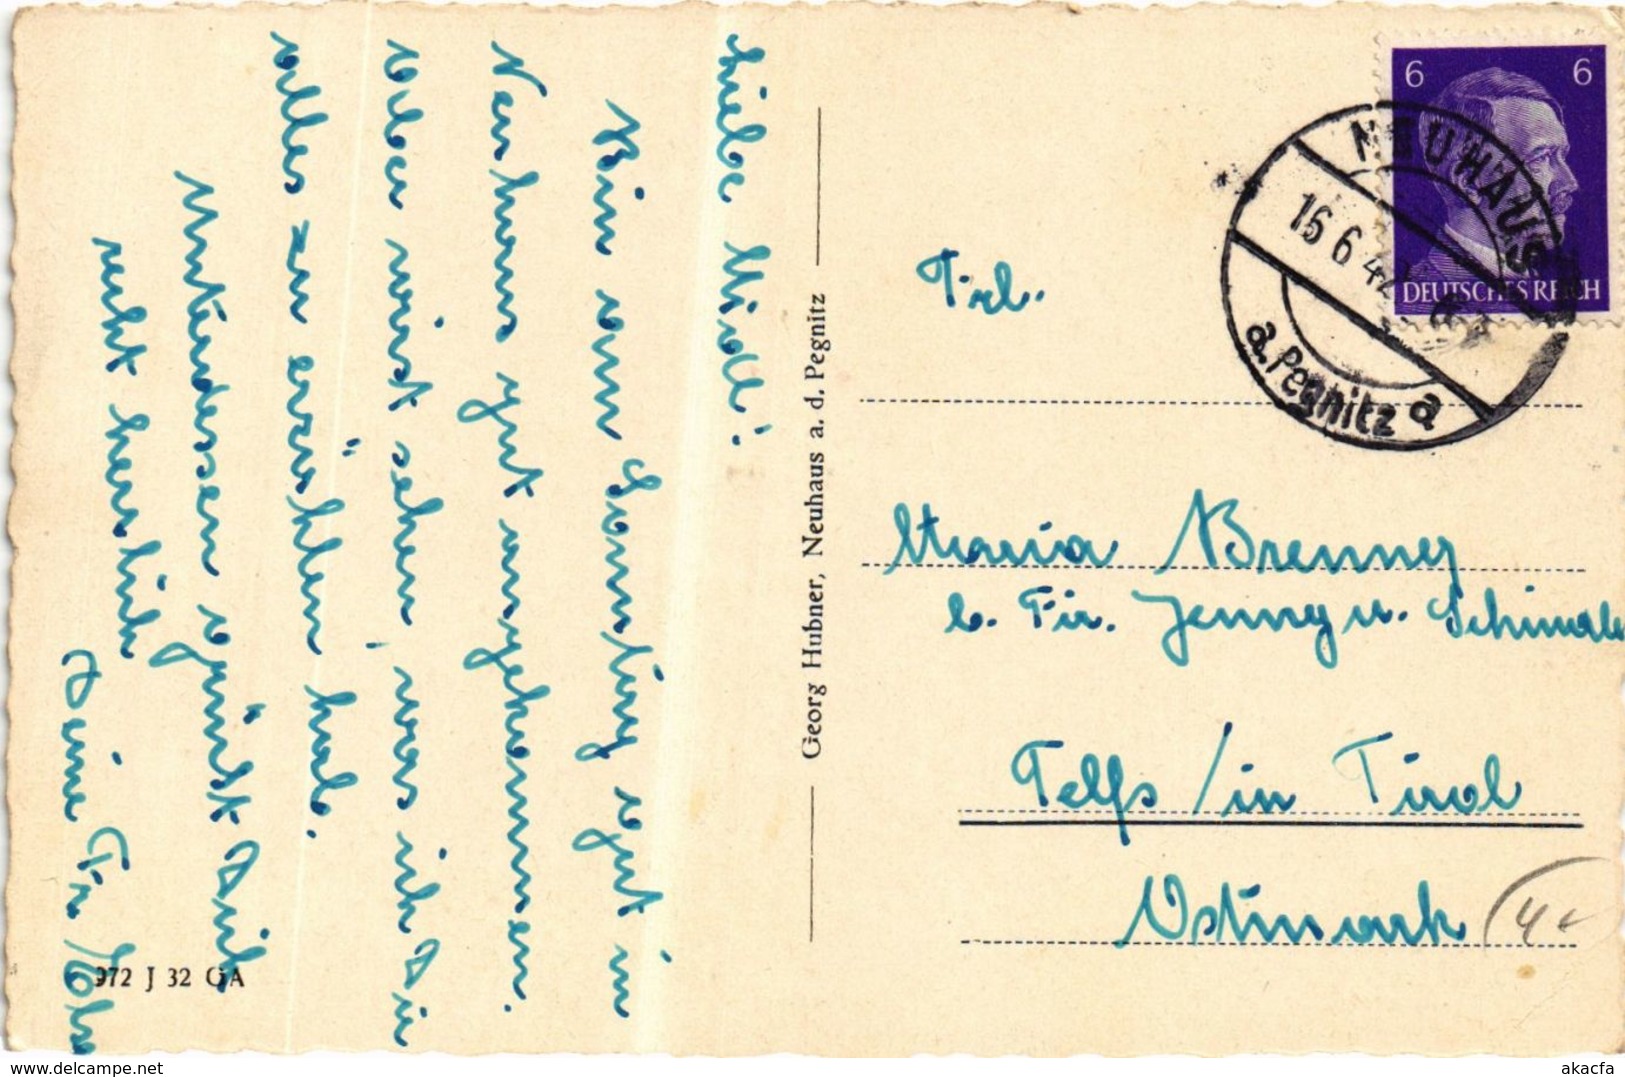 Liebe Midl!
Bin am Sonntag gut in
Neuhaus gut angekommen.
Aber wirst sehen, was ich Dir
alles zu erzählen hab.
Unterdessen grüsst Dich
recht herzlich
Deine Fr. Else
972 J 32 GA
Georg Hubner, Neuhaus a. d. Pegnitz
6 6
DEUTSCHES REICH
NEUHAUS
16 6 42
a. Pegnitz a
Frl.
Maria Brenner
b. Fr. Jenny u. Schindl
Telfs / in Tirol
Ostmark
4
akacfa